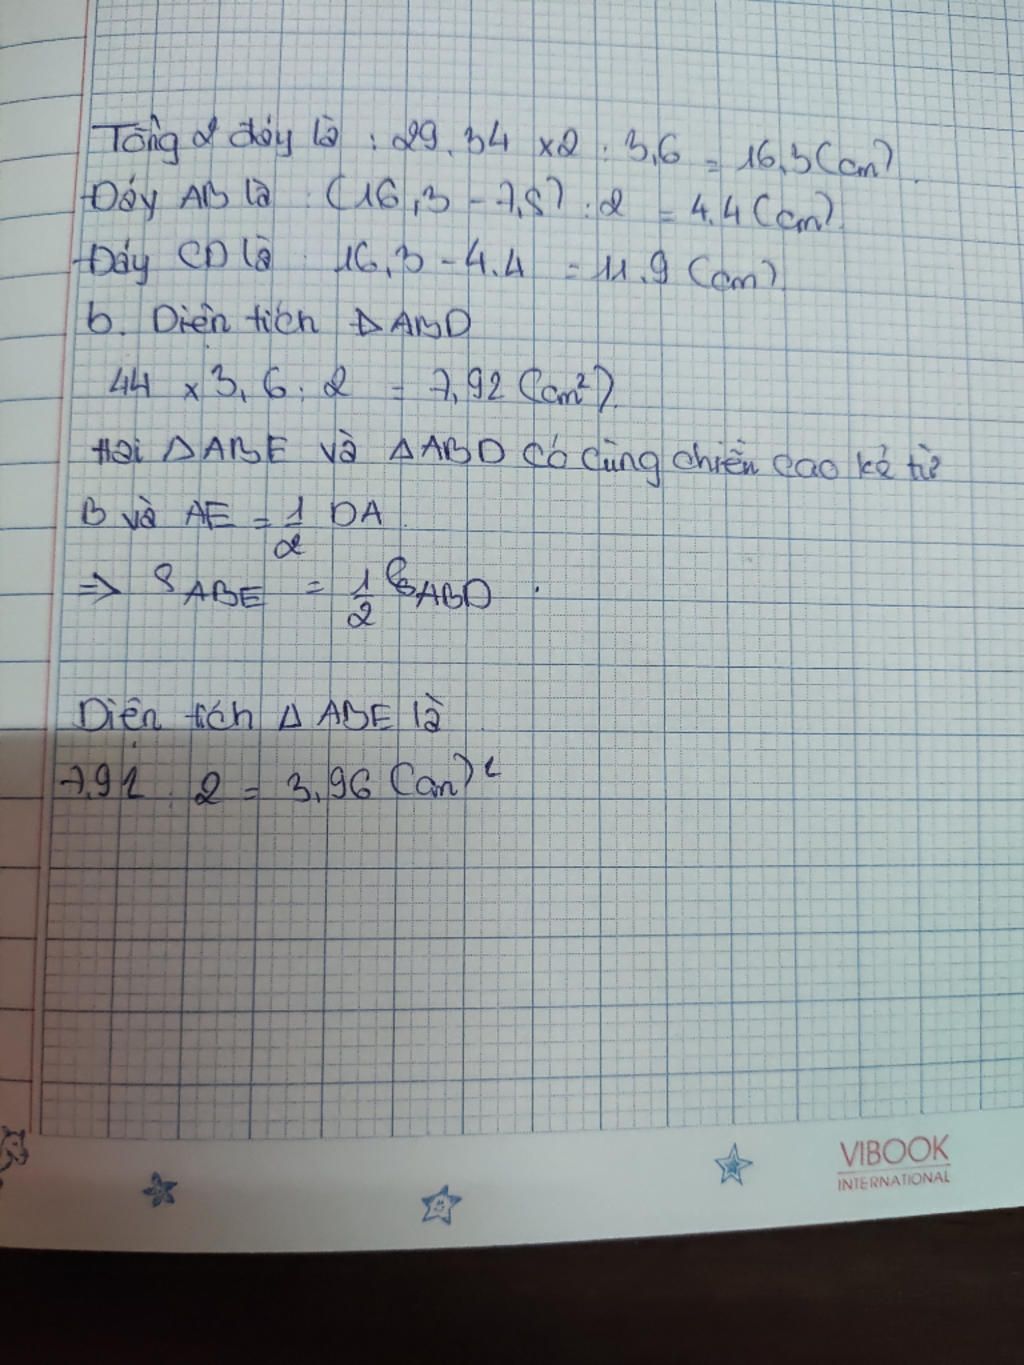 Tổng 2 đáy là : 29.34 x2 : 3,6 = 16,3 (cm)
Đáy AB là : (16,3 - 7,5) : 2 = 4.4 (cm)
Đáy CD là : 16,3 - 4.4 = 11.9 (cm)
b. Diện tích Δ ABD
44 x 3,6 : 2 = 7,92 (cm²)
Hai Δ ABE và Δ ABD có cùng chiền cao kẻ từ
B và AE = 1/2 DA
=> S ABE = 1/2 S ABD .
Diện tích Δ ABE là
7,92 : 2 = 3,96 (cm)²
VIBOOK
INTERNATIONAL